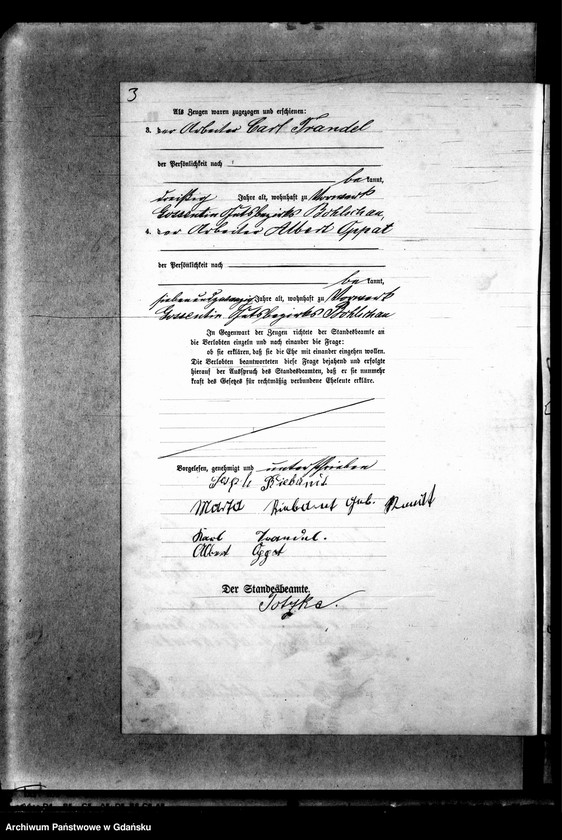 3
Als Zeugen waren zugezogen und erschienen:
3. der Arbeiter Carl Trandel
der Persönlichkeit nach
be kannt,
dreißig Jahre alt, wohnhaft zu Vorwerk
Gossentin Gutsbezirks Bohlschau,
4. der Arbeiter Albert Oppat
der Persönlichkeit nach
be kannt,
siebenundzwanzig Jahre alt, wohnhaft zu Vorwerk
Gossentin Gutsbezirks Bohlschau
In Gegenwart der Zeugen richtete der Standesbeamte an
die Verlobten einzeln und nach einander die Frage:
ob sie erklären, daß sie die Ehe mit einander eingehen wollen.
Die Verlobten beantworteten diese Frage bejahend und erfolgte
hierauf der Ausspruch des Standesbeamten, daß er sie nunmehr
kraft des Gesetzes für rechtmäßig verbundene Eheleute erkläre.
Vorgelesen, genehmigt und unterschrieben
Marta geb.
Karl Trandel.
Albert Oppat
Der Standesbeamte.
Archiwum Państwowe w Gdańsku